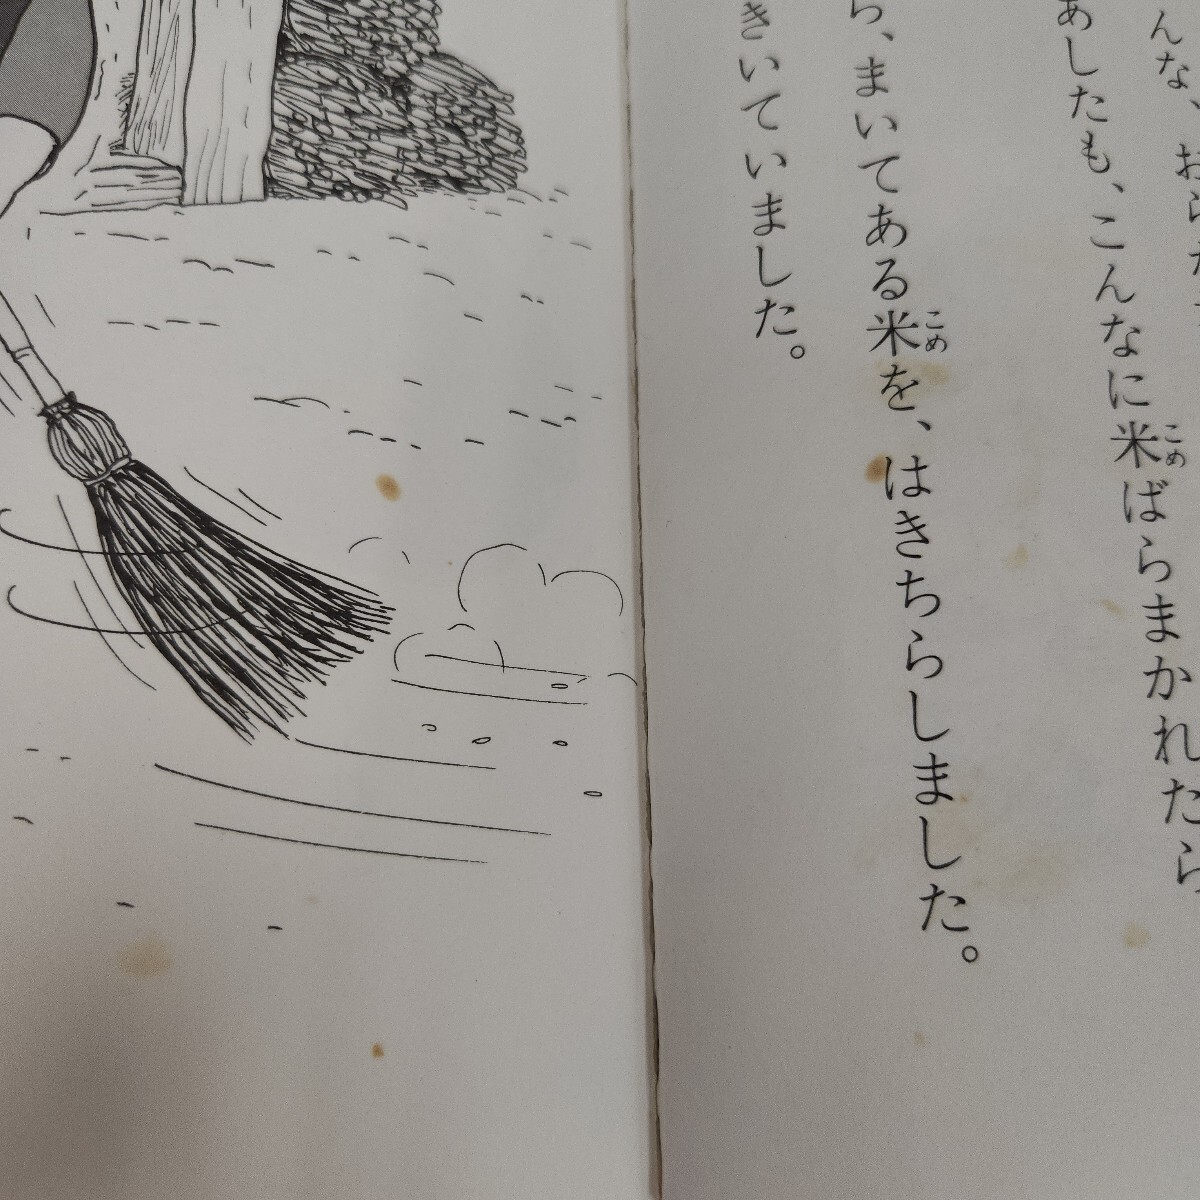 んな、おらが
あしたも、こんなに米ばらまかれたら、
ら、まいてある米を、はきちらしました。
きいていました。
こめ
こめ